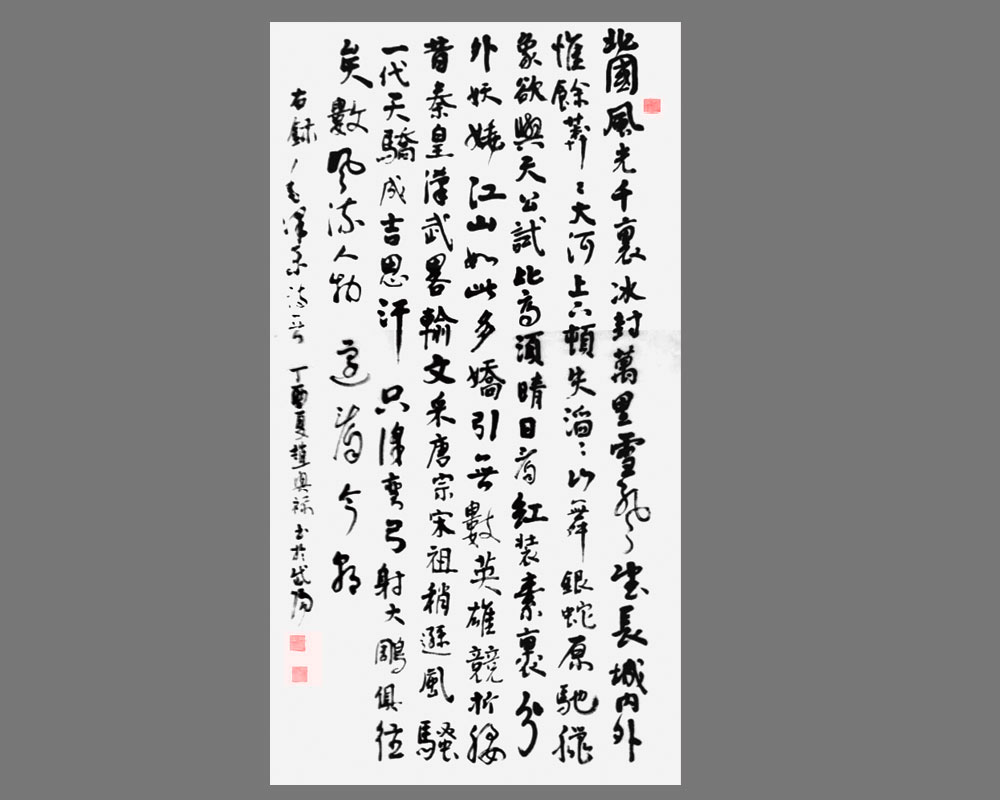 北國風光千裏冰封萬里雪飄望長城內外
惟餘莽〻大河上下頓失滔〻山舞銀蛇原馳臘
象欲與天公試比高須晴日看紅装素裹分
外妖嬈江山如此多嬌引無數英雄競折腰
昔秦皇漢武畧輸文采唐宗宋祖稍遜風騷
一代天驕成吉思汗只識彎弓射大鵰俱往
矣數風流人物還看今朝
右録毛澤東詩一首丁酉夏趙興禄书於岱陽